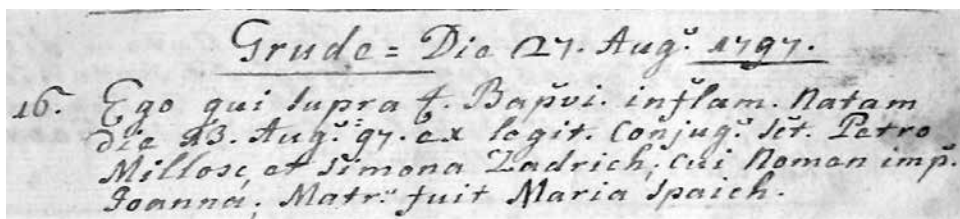 Grude = Die 27. Augi. 1797.
16. Ego qui supra f. Bapvi. inflam. Natam
Die 23. Augi. 97. ex legit. Conjug. Sct. Petro
Millosc, et Simona Zadrich, cui Nomen imp.
Joanna; Matr. fuit Maria Spaich.